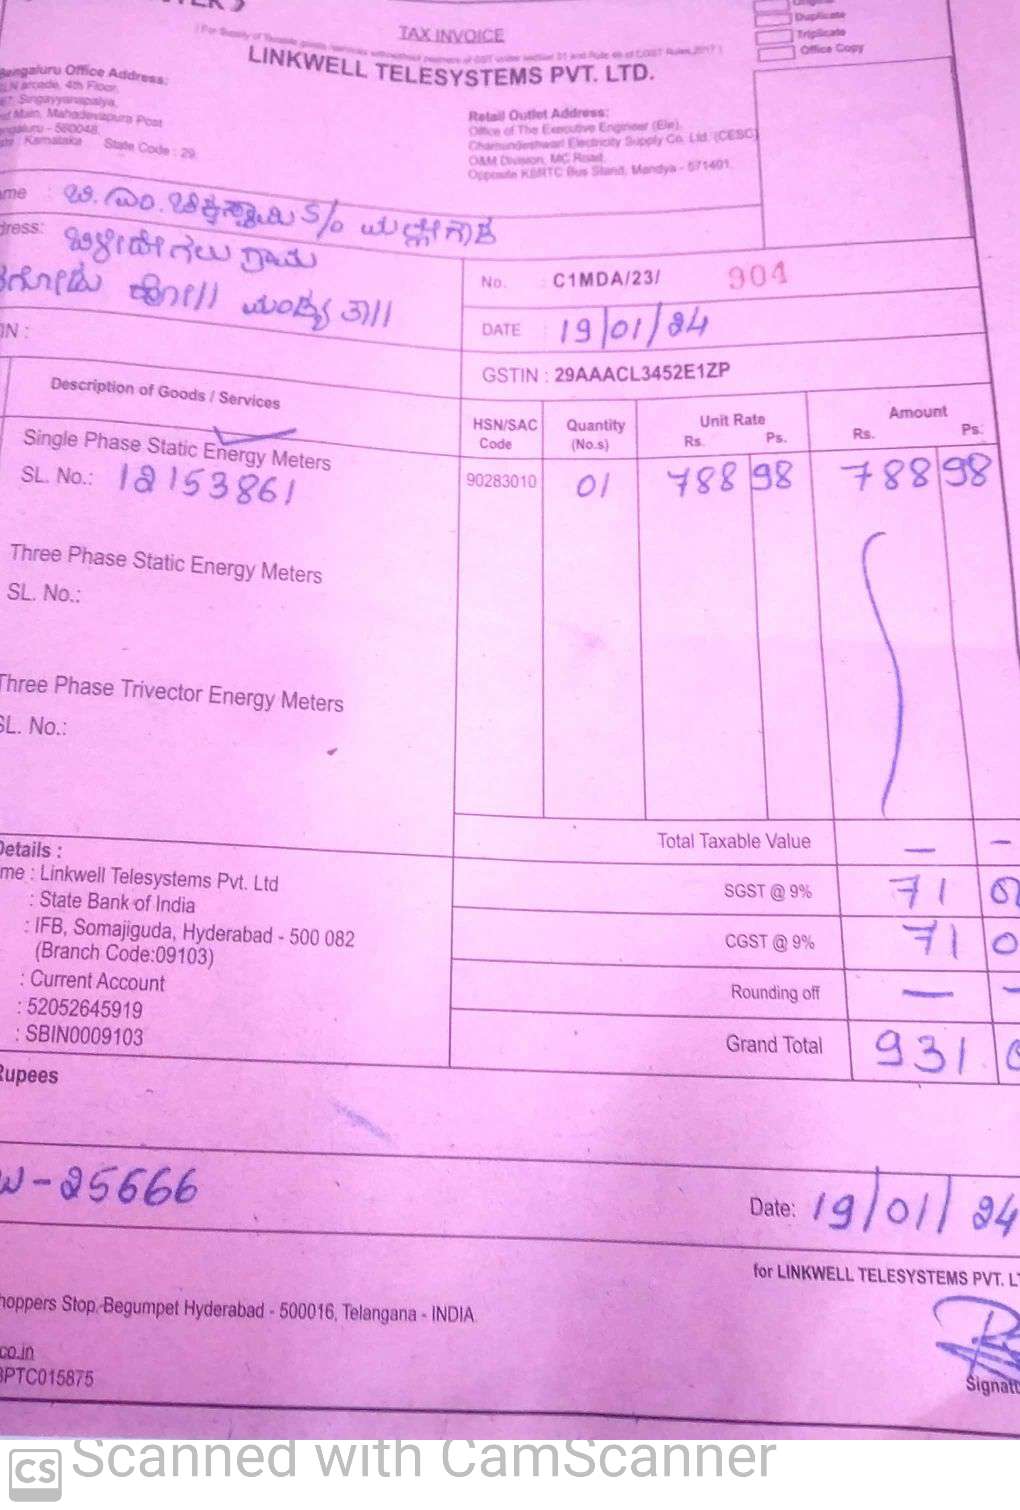 TAX INVOICE
LINKWELL TELESYSTEMS PVT. LTD.
Original
Duplicate
Triplicate
Office Copy
Bengaluru Office Address:
arcade, 4th Floor,
Singayyanapalya,
Main, Mahadevapura Post
- 560048,
Karnataka State Code : 29
Retail Outlet Address:
Office of The Executive Engineer (Ele),
Chamundeshwari Electricity Supply Co. Ltd. (CESC)
O&M Division, MC Road,
Opposite KSRTC Bus Stand, Mandya - 571401.
me ಬಿ.ಎಂ. ಚಿಕ್ಕಸ್ವಾಮಿ S/o ಮಲ್ಲೇಗೌಡ
dress: ಗ್ರಾಮ
ಹೋ|| ಮಂಡ್ಯ ತಾ||
No. : C1MDA/23/ 904
DATE : 19/01/24
IN :
GSTIN : 29AAACL3452E1ZP
Description of Goods / Services
HSN/SAC Code
Quantity (No.s)
Unit Rate Rs. Ps.
Amount Rs. Ps.
Single Phase Static Energy Meters
SL. No.: 12153861 90283010 01 788 98 788 98
Three Phase Static Energy Meters
SL. No.:
Three Phase Trivector Energy Meters
SL. No.:
Total Taxable Value — —
Details :
me : Linkwell Telesystems Pvt. Ltd
: State Bank of India
: IFB, Somajiguda, Hyderabad - 500 082
(Branch Code:09103)
: Current Account
: 52052645919
: SBIN0009103
SGST @ 9% 71 0
CGST @ 9% 71 0
Rounding off — -
Grand Total 931 0
Rupees
-25666
Date: 19/01/24
for LINKWELL TELESYSTEMS PVT. LT
hoppers Stop, Begumpet Hyderabad - 500016, Telangana - INDIA
co.in
BPTC015875
Signatu
CS Scanned with CamScanner